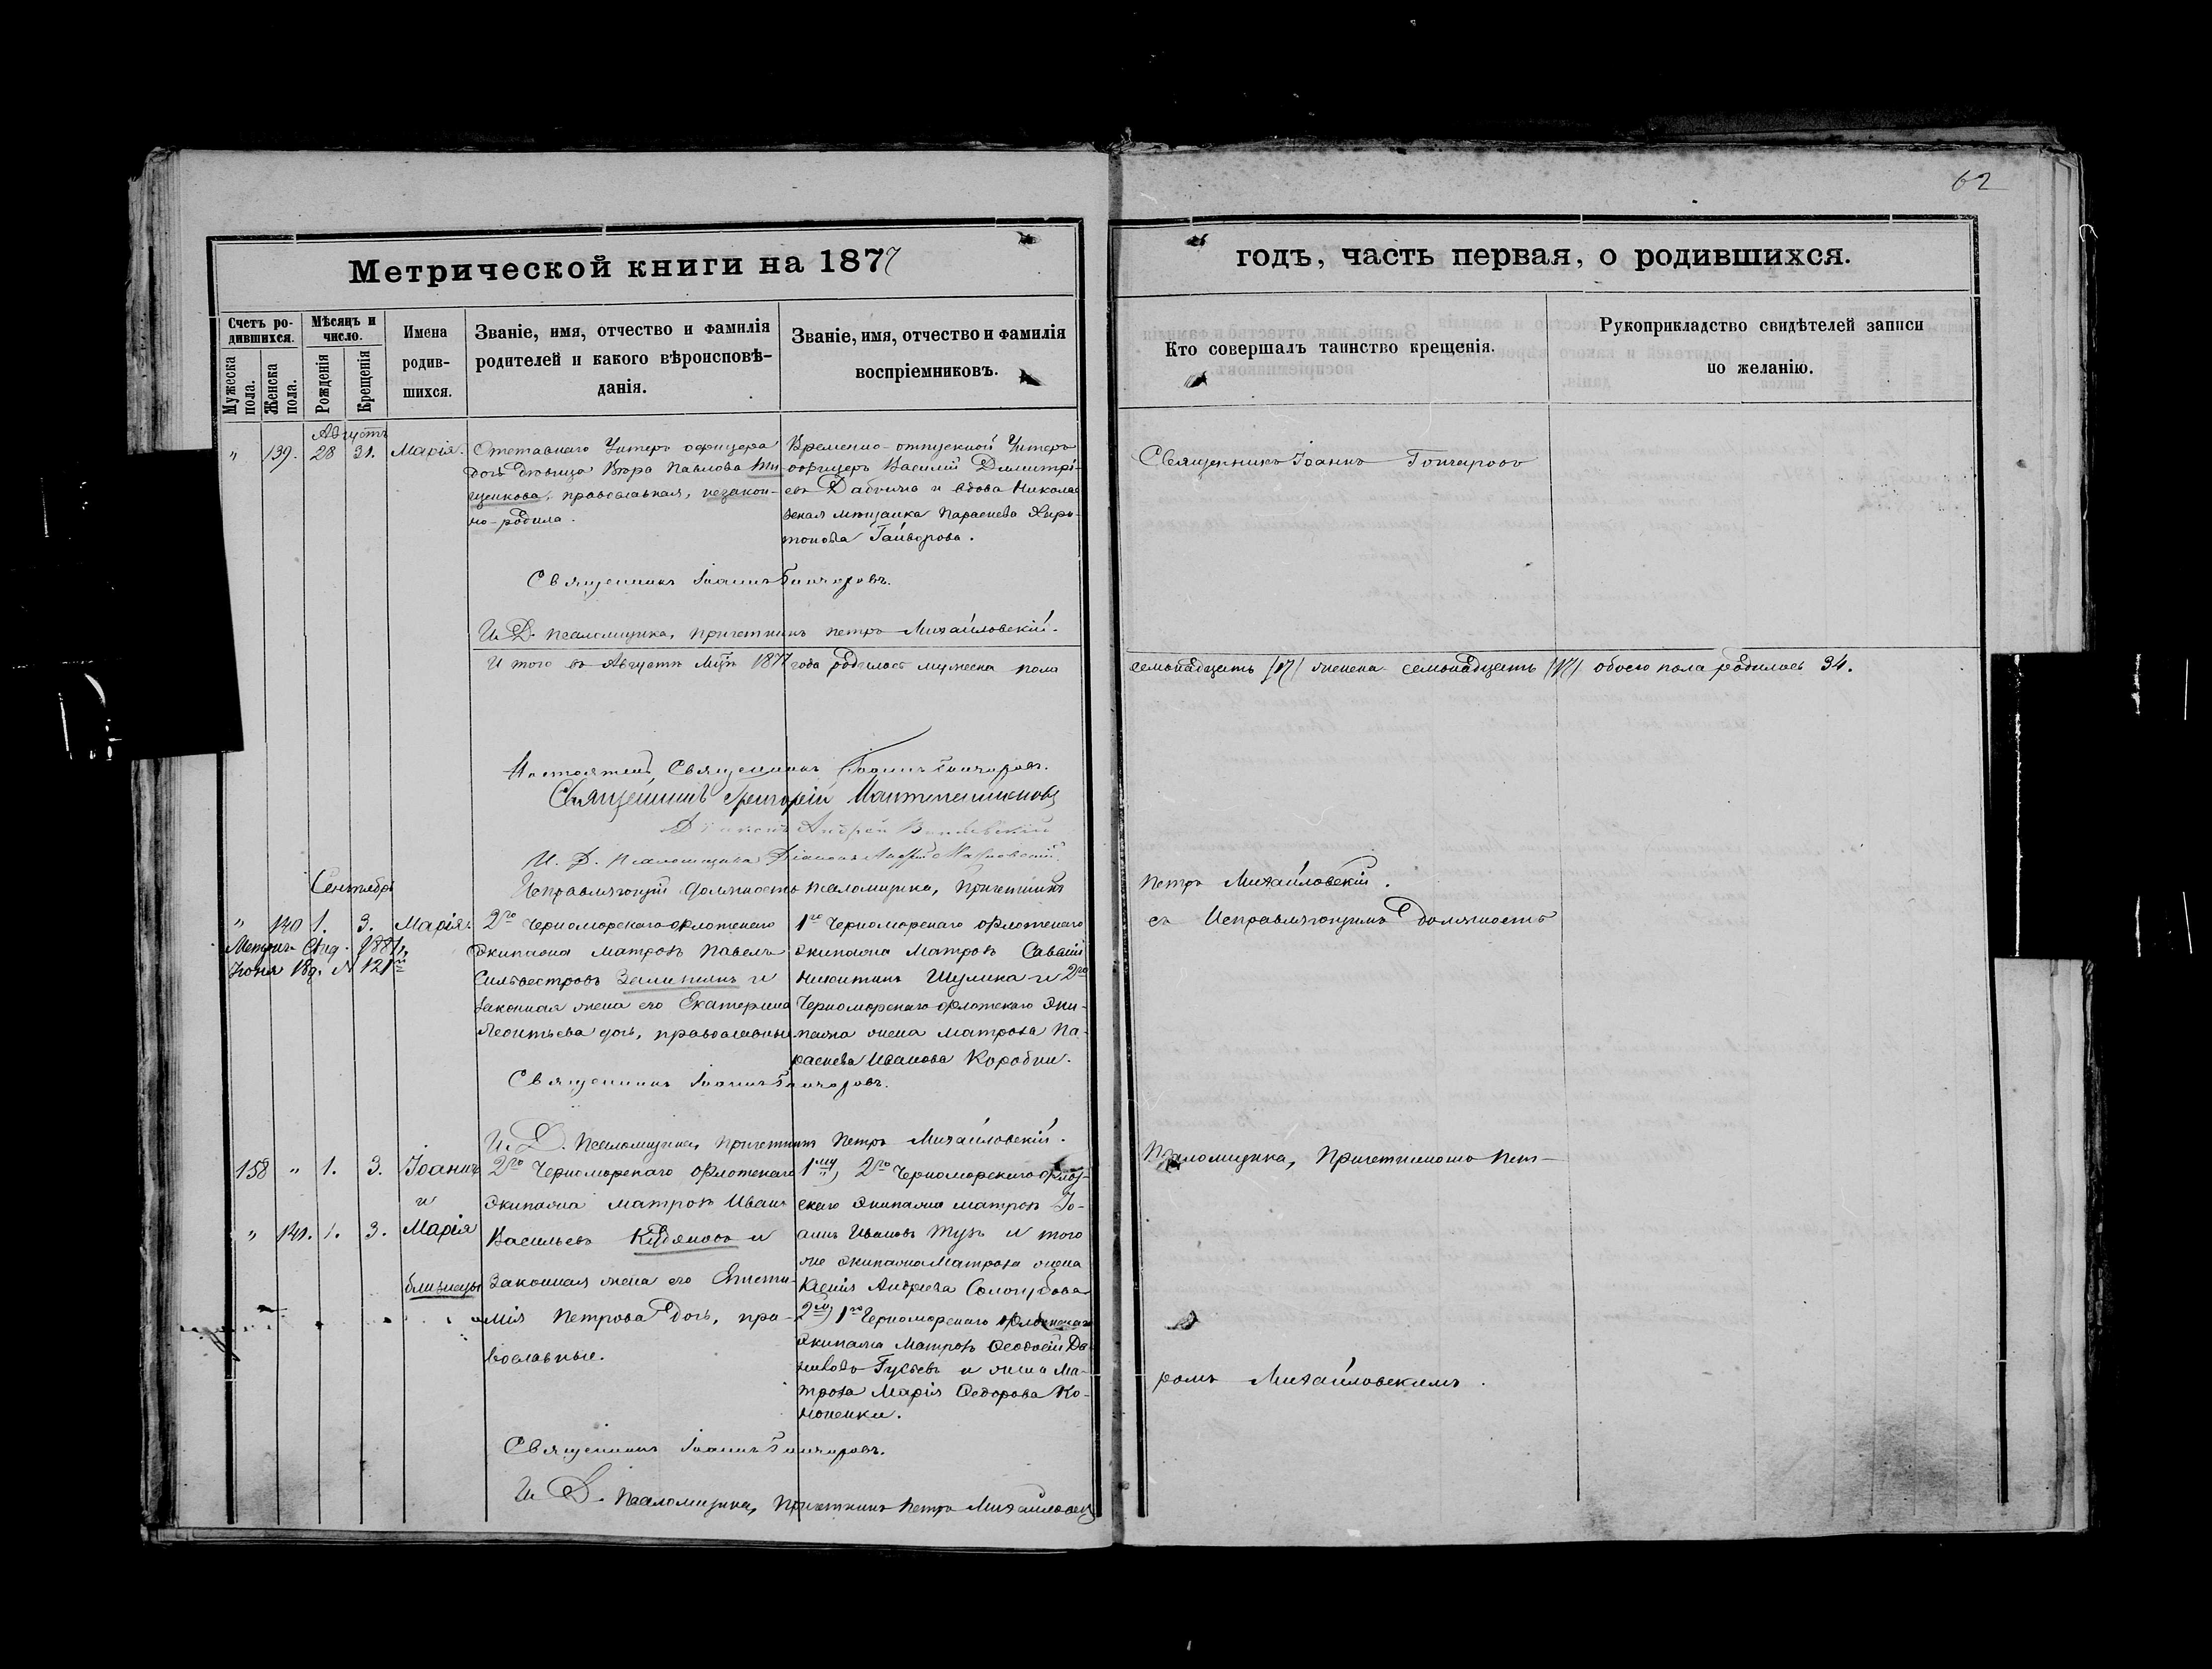 62
Метрической книги на 1877
годъ, часть первая, о родившихся.
Счетъ родившихся.
Мужеска пола.
Женска пола.
Мѣсяцъ и число.
Рожденія
Крещенія
Имена родившихся.
Званіе, имя, отчество и фамилія
родителей и какого вѣроисповѣ-
данія.
Званіе, имя, отчество и фамилія
воспріемниковъ.
Кто совершалъ таинство крещенія.
Рукоприкладство свидѣтелей записи
по желанію.
Августъ
" 139. 28 31. Марія.
Отставнаго Унтеръ офицера
дочь девица Вѣра Павлова
православная, незакон-
но-родила.
Временно-отпускной Унтеръ
офицеръ Василий Димитрі-
евъ и вдова Никола-
евская мѣщанка Параскева Хари-
тонова Гайворова.
Священникъ Іоаннъ Гончаровъ
Священникъ Іоаннъ Гончаровъ.
И. Д. псаломщика, причетникъ Петръ Михайловскій.
Итого въ Августѣ Мцѣ 1877 года родилось мужеска пола
семьнадцать (17) женска семьнадцать (17) обоего пола родилось 34.
Настоятель, Священникъ Іоаннъ Гончаровъ.
Священникъ Григорій
Діаконъ Андрей
И. Д. Псаломщика Діаконъ
Исправляющій должность псаломщика, Причетникъ
Петръ Михайловскій.
Сентябрь
" 140 1. 3. Марія.
Метрич. Свид. 1881 г.
Іюня 18 д. № 121
2го Черноморскаго флотскаго
Экипажа матросъ Павелъ
Сильвестровъ и
законная жена его Екатерина
Леонтьева дочь, православные.
1го Черноморскаго флотскаго
экипажа Матросъ Савватій
Никитинъ Шулика и 2го
Черноморскаго флотскаго эки-
пажа жена матроса Па-
раскева Иванова Коробки.
съ Исправляющимъ Должность
Священникъ Іоаннъ Гончаровъ.
И. Д. Псаломщика, причетникъ Петръ Михайловскій.
Псаломщика, Причетникомъ Пет-
158 " 1. 3. Іоаннъ
и
" 141. 1. 3. Марія
близнецы
2го Черноморскаго флотскаго
Экипажа матросъ Иванъ
Васильевъ и
законная жена его
мія Петрова дочь, пра-
вославные.
1му, 2го Черноморскаго флот-
скаго экипажа матросъ Іо-
аннъ Ивановъ и того
же экипажа Матроса жена
Ксенія Андреева Сологубова
2й, 1го Черноморскаго флотскаго
экипажа Матросъ Ѳеодосій Да-
ниловъ Гусевъ и жена Ма-
троса Марія Ѳедорова Ко-
ноненки.
ромъ Михайловскимъ.
Священникъ Іоаннъ Гончаровъ.
И. Д. Псаломщика, Причетникъ Петръ Михайловскій